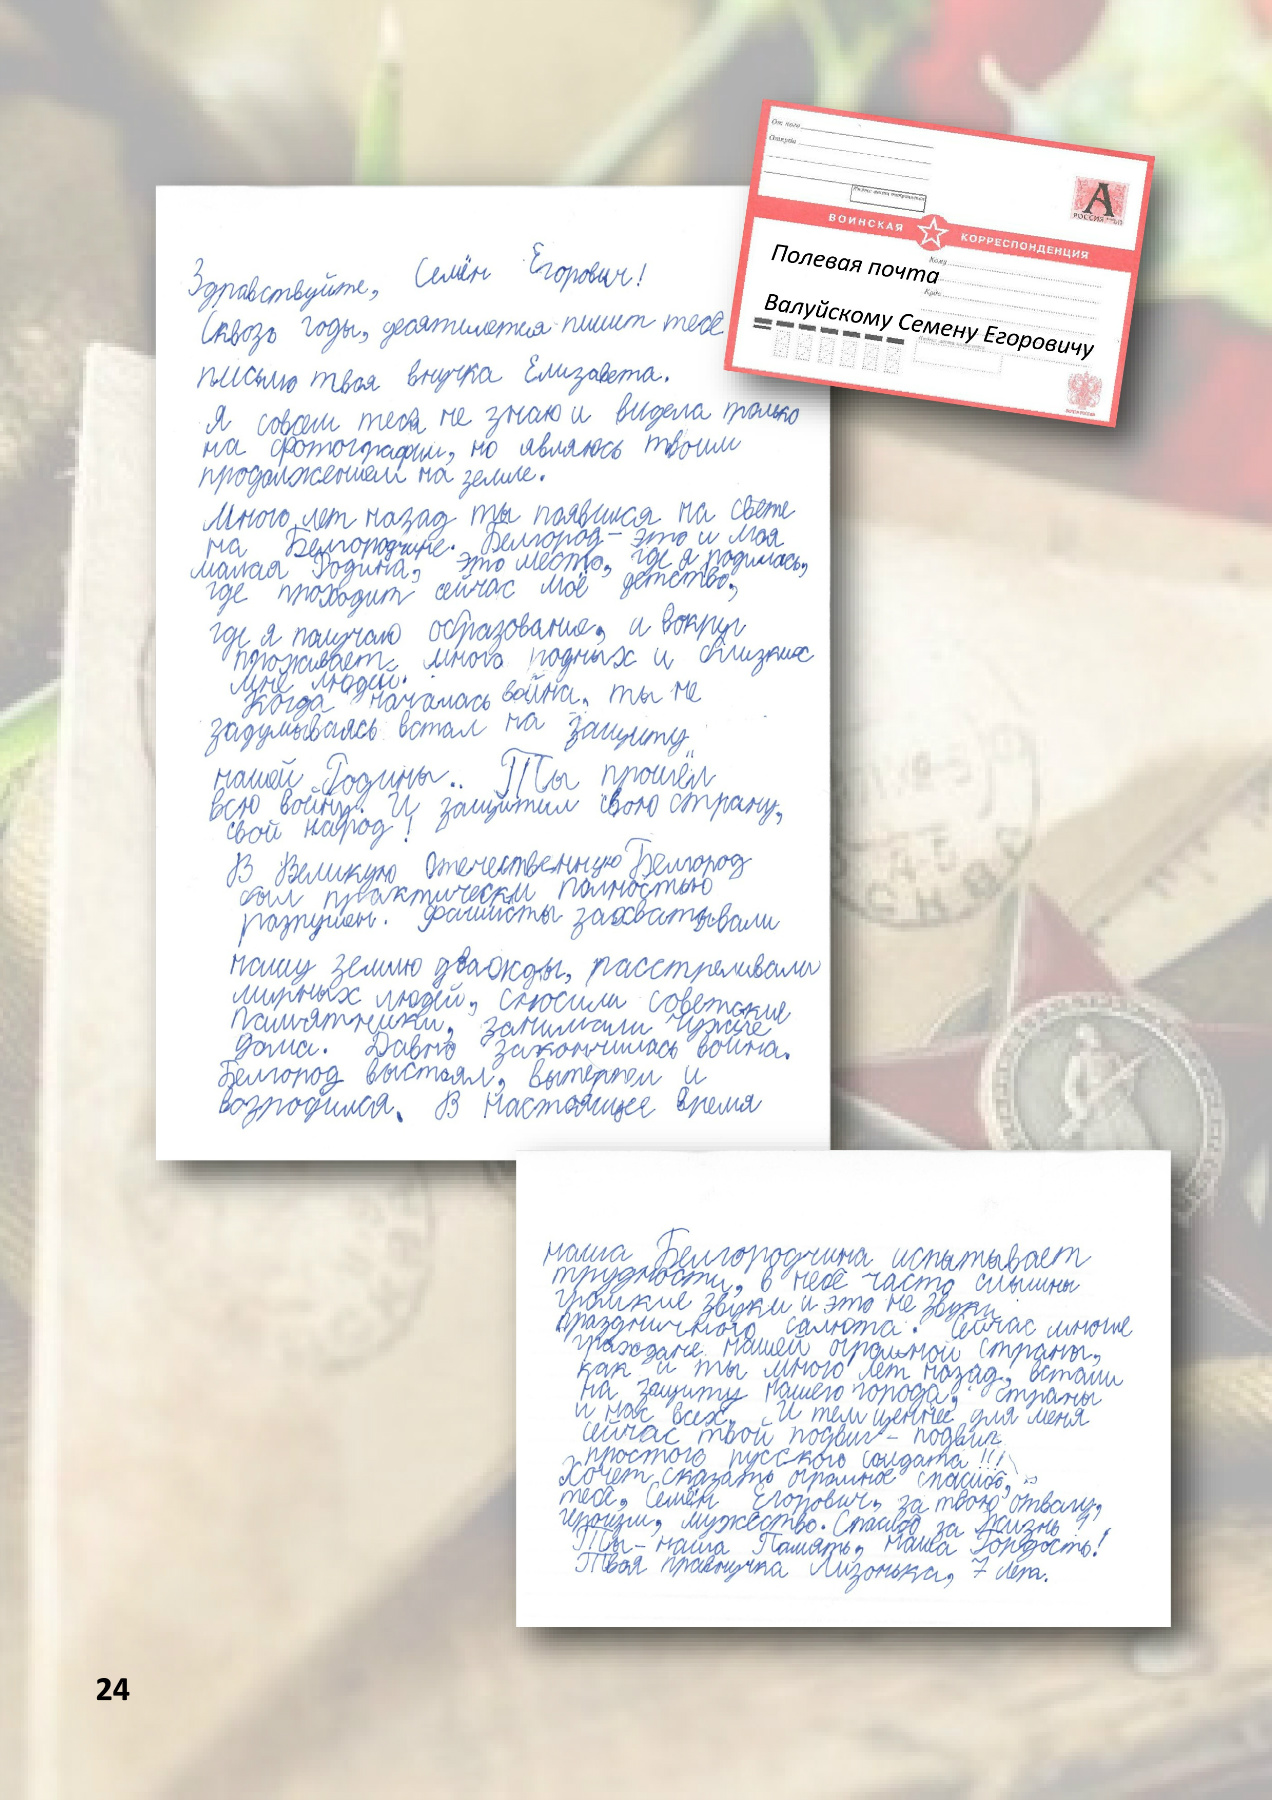 От кого
Откуда
Индекс места отправления
А
РОССИЯ
ВОИНСКАЯ КОРРЕСПОНДЕНЦИЯ
Кому
Полевая почта
Куда
Валуйскому Семену Егоровичу
ПОЧТА РОССИИ
Здравствуйте, Семён Егорович!
Сквозь годы, десятилетия пишет тебе
письмо твоя внучка Елизавета.
Я совсем тебя не знаю и видела только
на фотографии, но являюсь твоим
продолжением на земле.
Много лет назад ты появился на свете
на Белгородчине. Белгород – это и моя
малая Родина, это место, где я родилась,
где проходит сейчас моё детство,
где я получаю образование, и вокруг
проживает много родных и близких
мне людей.
Когда началась война, ты не
задумываясь встал на защиту
нашей Родины.. Ты прошёл
всю войну. И защитил свою страну,
свой народ!
В Великую Отечественную Белгород
был практически полностью
разрушен. Фашисты захватывали
нашу землю дважды, расстреливали
мирных людей, сносили советские
памятники, занимали чужие
дома. Давно закончилась война.
Белгород выстоял, вытерпел и
возродился. В настоящее время
наша Белгородчина испытывает
трудности, в небе часто слышны
громкие звуки и это не звуки
праздничного салюта. Сейчас многие
граждане нашей огромной страны,
как и ты много лет назад, встали
на защиту нашего города, страны
и нас всех. И тем ценнее для меня
сейчас твой подвиг – подвиг
простого русского солдата!!!
Хочет сказать огромное спасибо,
тебе, Семён Егорович, за твою отвагу,
героизм, мужество. Спасибо за жизнь!
Ты – наша Память, наша Гордость!
Твоя правнучка Лизонька, 7 лет.
24